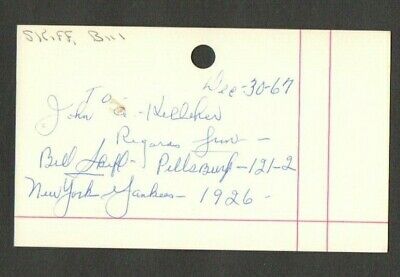 SKIFF, Bill
Dec-30-67
To
John A. Kelleher
Regards from -
Bill Skiff - Pittsburg - 121-2
New York Yankees - 1926 -